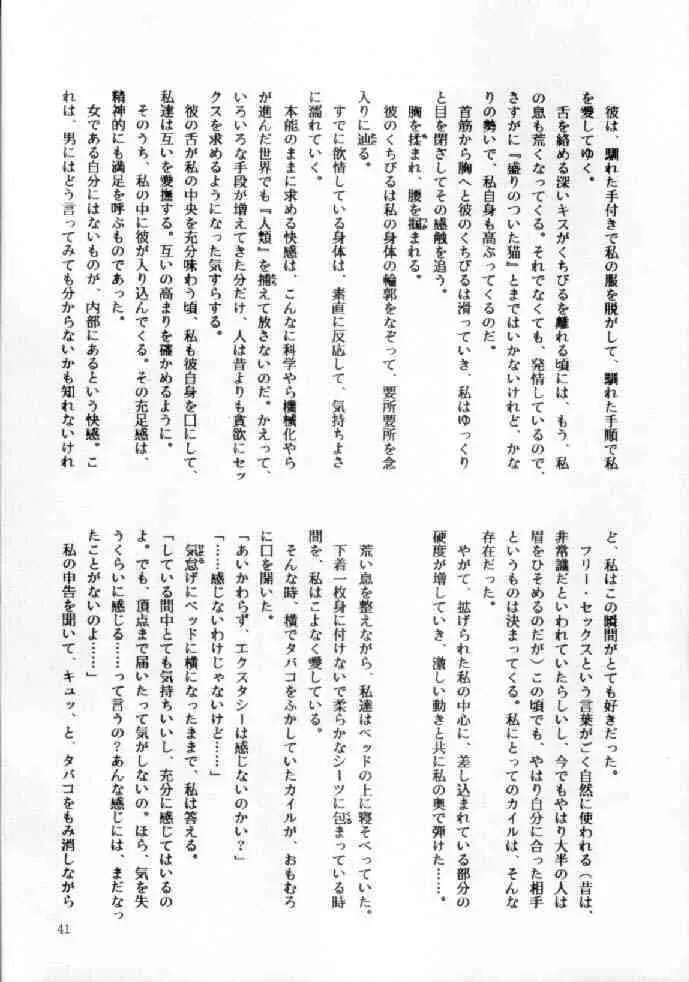 彼は、馴れた手付きで私の服を脱がして、馴れた手順で私
を愛してゆく。
舌を絡める深いキスがくちびるを離れる頃には、もう、私
の息も荒くなってくる。それでなくても、発情しているので、
さすがに『盛りのついた猫』とまではいかないけれど、かな
りの勢いで、私自身も高ぶってくるのだ。
首筋から胸へと彼のくちびるは滑っていき、私はゆっくり
と目を閉ざしてその感触を追う。
胸を揉まれ、腰を掴まれる。
彼のくちびるは私の身体の輪郭をなぞって、要所要所を念
入りに辿る。
すでに欲情している身体は、素直に反応して、気持ちよさ
に濡れていく。
本能のままに求める快感は、こんなに科学やら機械化やら
が進んだ世界でも『人類』を捕えて放さないのだ。かえって、
いろいろな手段が増えてきた分だけ、人は昔よりも貪欲にセッ
クスを求めるようになった気すらする。
彼の舌が私の中央を充分味わう頃、私も彼自身を口にして、
私達は互いを愛撫する。互いの高まりを確かめるように。
そのうち、私の中に彼が入り込んでくる。その充足感は、
精神的にも満足を呼ぶものであった。
女である自分にはないものが、内部にあるという快感。こ
れは、男にはどう言ってみても分からないかも知れないけれ
ど、私はこの瞬間がとても好きだった。
フリー・セックスという言葉がごく自然に使われる（昔は、
非常識だといわれていたらしいし、今でもやはり大半の人は
眉をひそめるのだが）この頃でも、やはり自分に合った相手
というものは決まってくる。私にとってのカイルは、そんな
存在だった。
やがて、拡げられた私の中心に、差し込まれている部分の
硬度が増していき、激しい動きと共に私の奥で弾けた……。
荒い息を整えながら、私達はベッドの上に寝そべっていた。
下着一枚身に付けないで柔らかなシーツに包まっている時
間を、私はこよなく愛している。
そんな時、横でタバコをふかしていたカイルが、おもむろ
に口を開いた。
「あいかわらず、エクスタシーは感じないのかい？」
「……感じないわけじゃないけど……」
気怠げにベッドに横になったままで、私は答える。
「している間中とても気持ちいいし、充分に感じてはいるの
よ。でも、頂点まで届いたって気がしないの。ほら、気を失
うくらいに感じる……って言うの？あんな感じには、まだなっ
たことがないのよ……」
私の申告を聞いて、キュッ、と、タバコをもみ消しながら
41